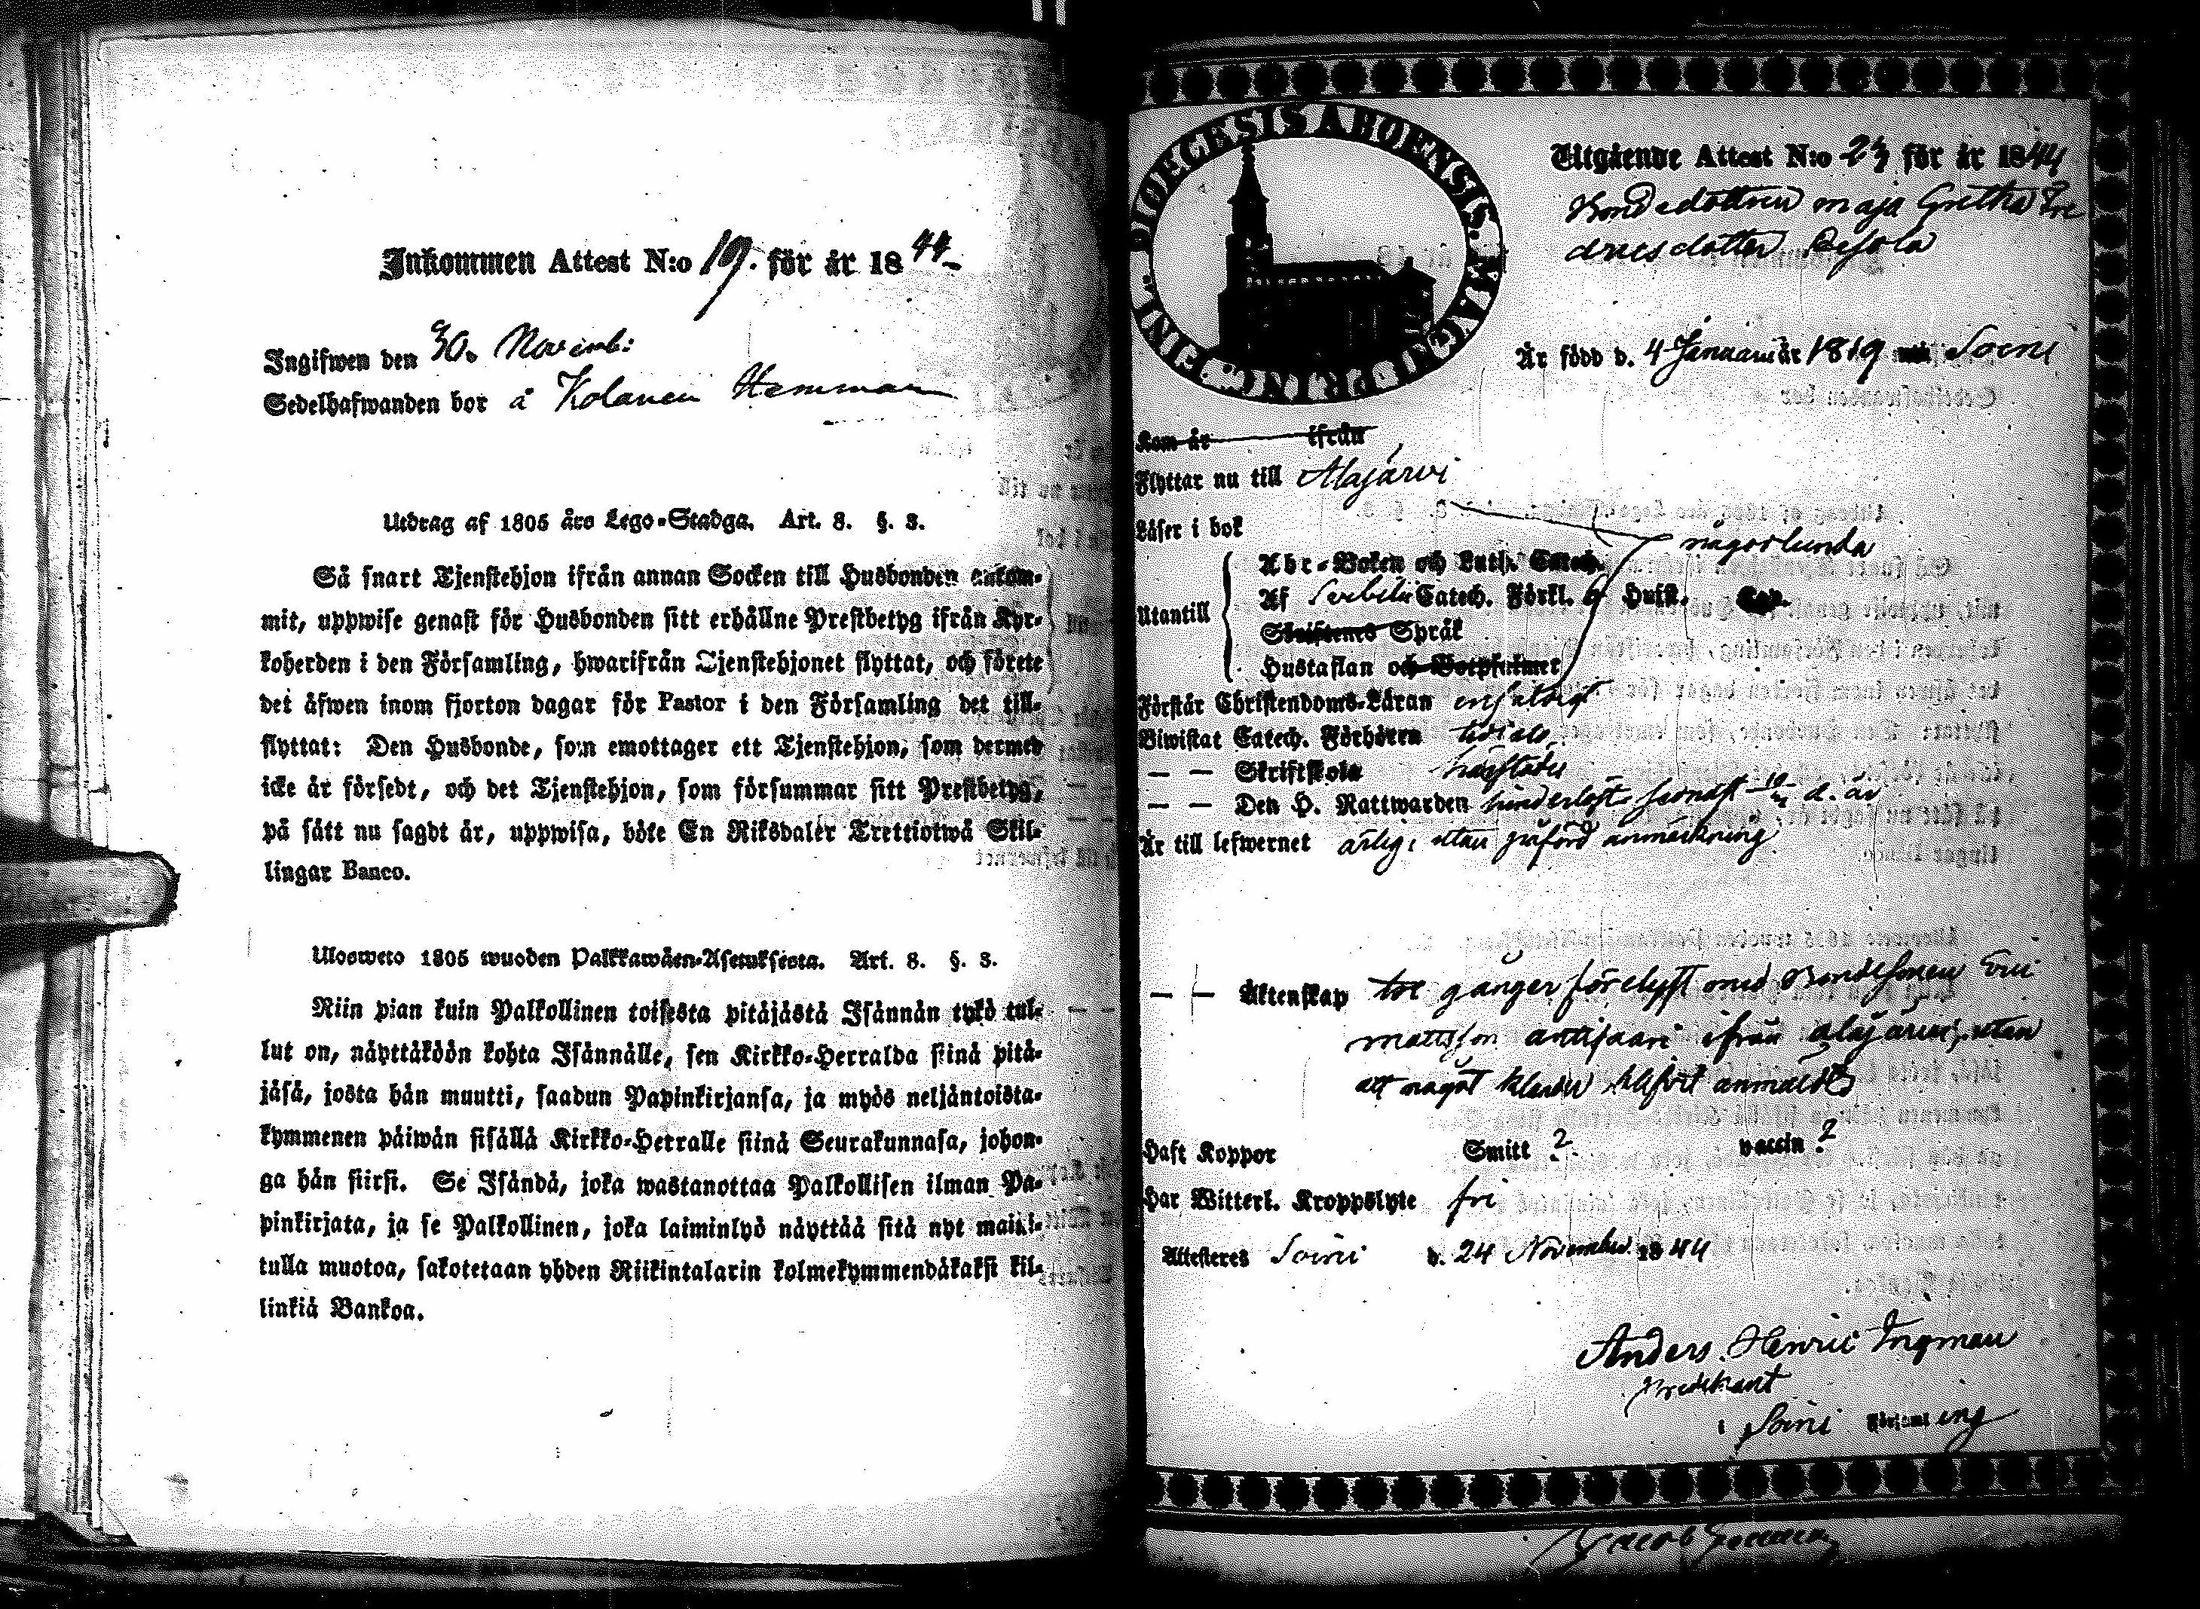 Inkommen Attest N:o 19. för år 1844
Ingifwen den 30. Novemb:
Sedelhafwanden bor å Kolanen Hemman
Utdrag af 1805 års Lego-Stadga. Art. 8. §. 3.
Så snart Tjenstehjon ifrån annan Socken till Husbonden ankom-
mit, uppwise genast för Husbonden sitt erhållne Prestbetyg ifrån Kyr-
koherden i den Församling, hwarifrån Tjenstehjonet flyttat, och förete
det äfwen inom fjorton dagar för Pastor i den Församling det till-
flyttat: Den Husbonde, som emottager ett Tjenstehjon, som dermed
icke är försedt, och det Tjenstehjon, som försummar sitt Prestbetyg,
på sätt nu sagdt är, uppwisa, böte En Riksdaler Trettiotwå Skil-
lingar Banco.
Ulosweto 1805 wuoden Palkkawäen-Asetuksesta. Art. 8. §. 3.
Niin pian kuin Palkollinen toisesta pitäjästä Isännän tykö tul-
lut on, näyttäköön kohta Isännälle, sen Kirkko-Herralda siinä pitä-
jäsä, josta hän muutti, saadun Papinkirjansa, ja myös neljäntoista-
kymmenen päiwän sisällä Kirkko-Herralle siinä Seurakunnasa, johon-
ga hän siirsi. Se Isändä, joka wastanottaa Palkollisen ilman Pa-
pinkirjata, ja se Palkollinen, joka laiminlyö näyttää sitä nyt mainit-
tulla muotoa, sakotetaan yhden Riikintalarin kolmekymmendäkaksi kil-
linkiä Bankoa.
DIOECESIS ABOENSIS. MAGNI PRINC. FINL.
Utgående Attest N:o 23 för år 1844
Bondedottren Maja Gretha Are
dnesdotter Pesola
Är född d. 4 Januari år 1819 Soini
Kom år ifrån
Flyttar nu till Alajärvi
Läser i bok någorlunda
Utantill
Abc-Boken och Luth. Catech.
Af Svebelii Catech. Förkl. 6 Hufst. Cap.
Skriftenes Språk
Hustaflan och Botpsalmer
Förstår Christendoms-Läran enfaldigt
Biwistat Catech. Förhören
— — Skriftskola
— — Den H. Nattwarden hinderlöst senast d. år
Är till lefwernet ärlig, utan anmärkning
— — Äktenskap tre gånger förelyst med Bondesonen
Mattsson Antijaari ifrån Alajärvi, utan
att något klander blifvit anmäldt
Haft Koppor Smitt ? vaccin ?
Har Witterl. Kroppslyte fri
Attesteres Soini d. 24 November 1844
Anders Henric Ingman
Predikant
i Soini Församling